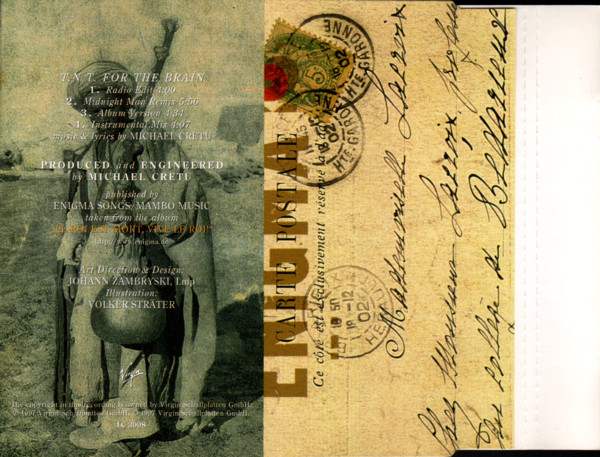 T.N.T. FOR THE BRAIN
1. Radio Edit 4:00
2. Midnight Man Remix 5:56
3. Album Version 4:34
4. Instrumental Mix 4:07
music & lyrics by MICHAEL CRETU
PRODUCED and ENGINEERED
by MICHAEL CRETU
published by
ENIGMA SONGS/MAMBO MUSIC
taken from the album
"LE ROI EST MORT, VIVE LE ROI!"
http://www.enigma.de
Art Direction & Design:
JOHANN ZAMBRYSKI, Imp
Illustration:
VOLKER STRÄTER
Virgin
The copyright in this recording is owned by Virgin Schallplatten GmbH.
℗ 1997 Virgin Schallplatten GmbH. © 1997 Virgin Schallplatten GmbH.
LC 3098
ENIGMA
CARTE POSTALE
Ce côté est exclusivement réservé à l'adresse
HTE-GARONNE
02
HTE-GARONNE
02
18 50
18 -12
02
Mademoiselle Lacroix
Chez Monsieur Lacroix
Au collège de Bédarieux